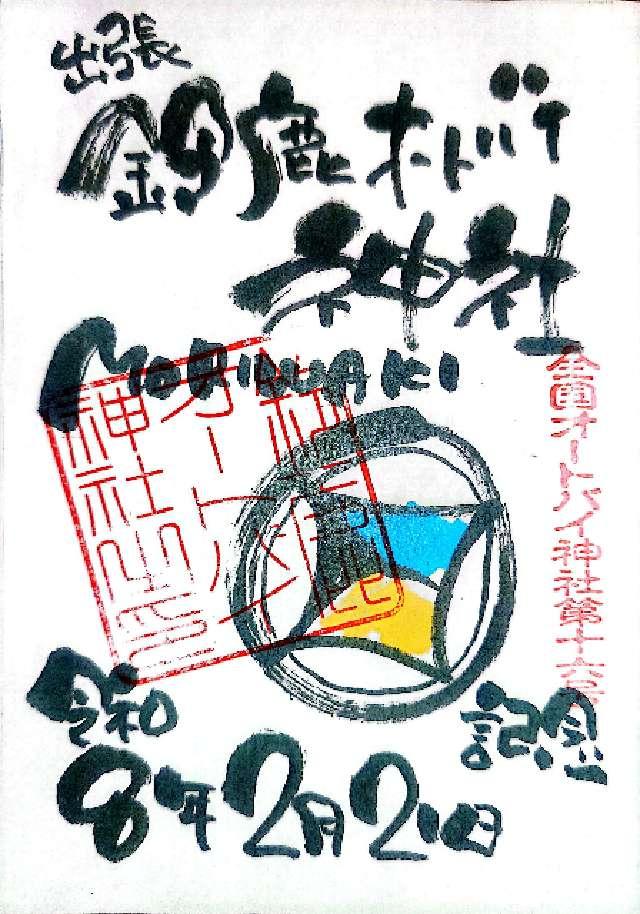 出張
鈴鹿オートバイ
神社
MORIWAKI
全国オートバイ神社第十六号
鈴鹿
オートバイ
神社
令和
記念
8年2月21日